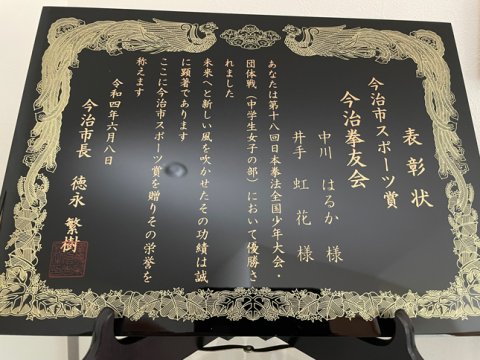 表彰状
今治市スポーツ賞
今治拳友会
中川 はるか 様
井手 虹花 様
あなたは第十八回日本拳法全国少年大会・
団体戦(中学生女子の部)において優勝さ
れました
未来へと新しい風を吹かせたその功績は誠
に顕著であります
ここに今治市スポーツ賞を贈りその栄誉を
称えます
令和四年六月八日
今治市長 徳永 繁樹